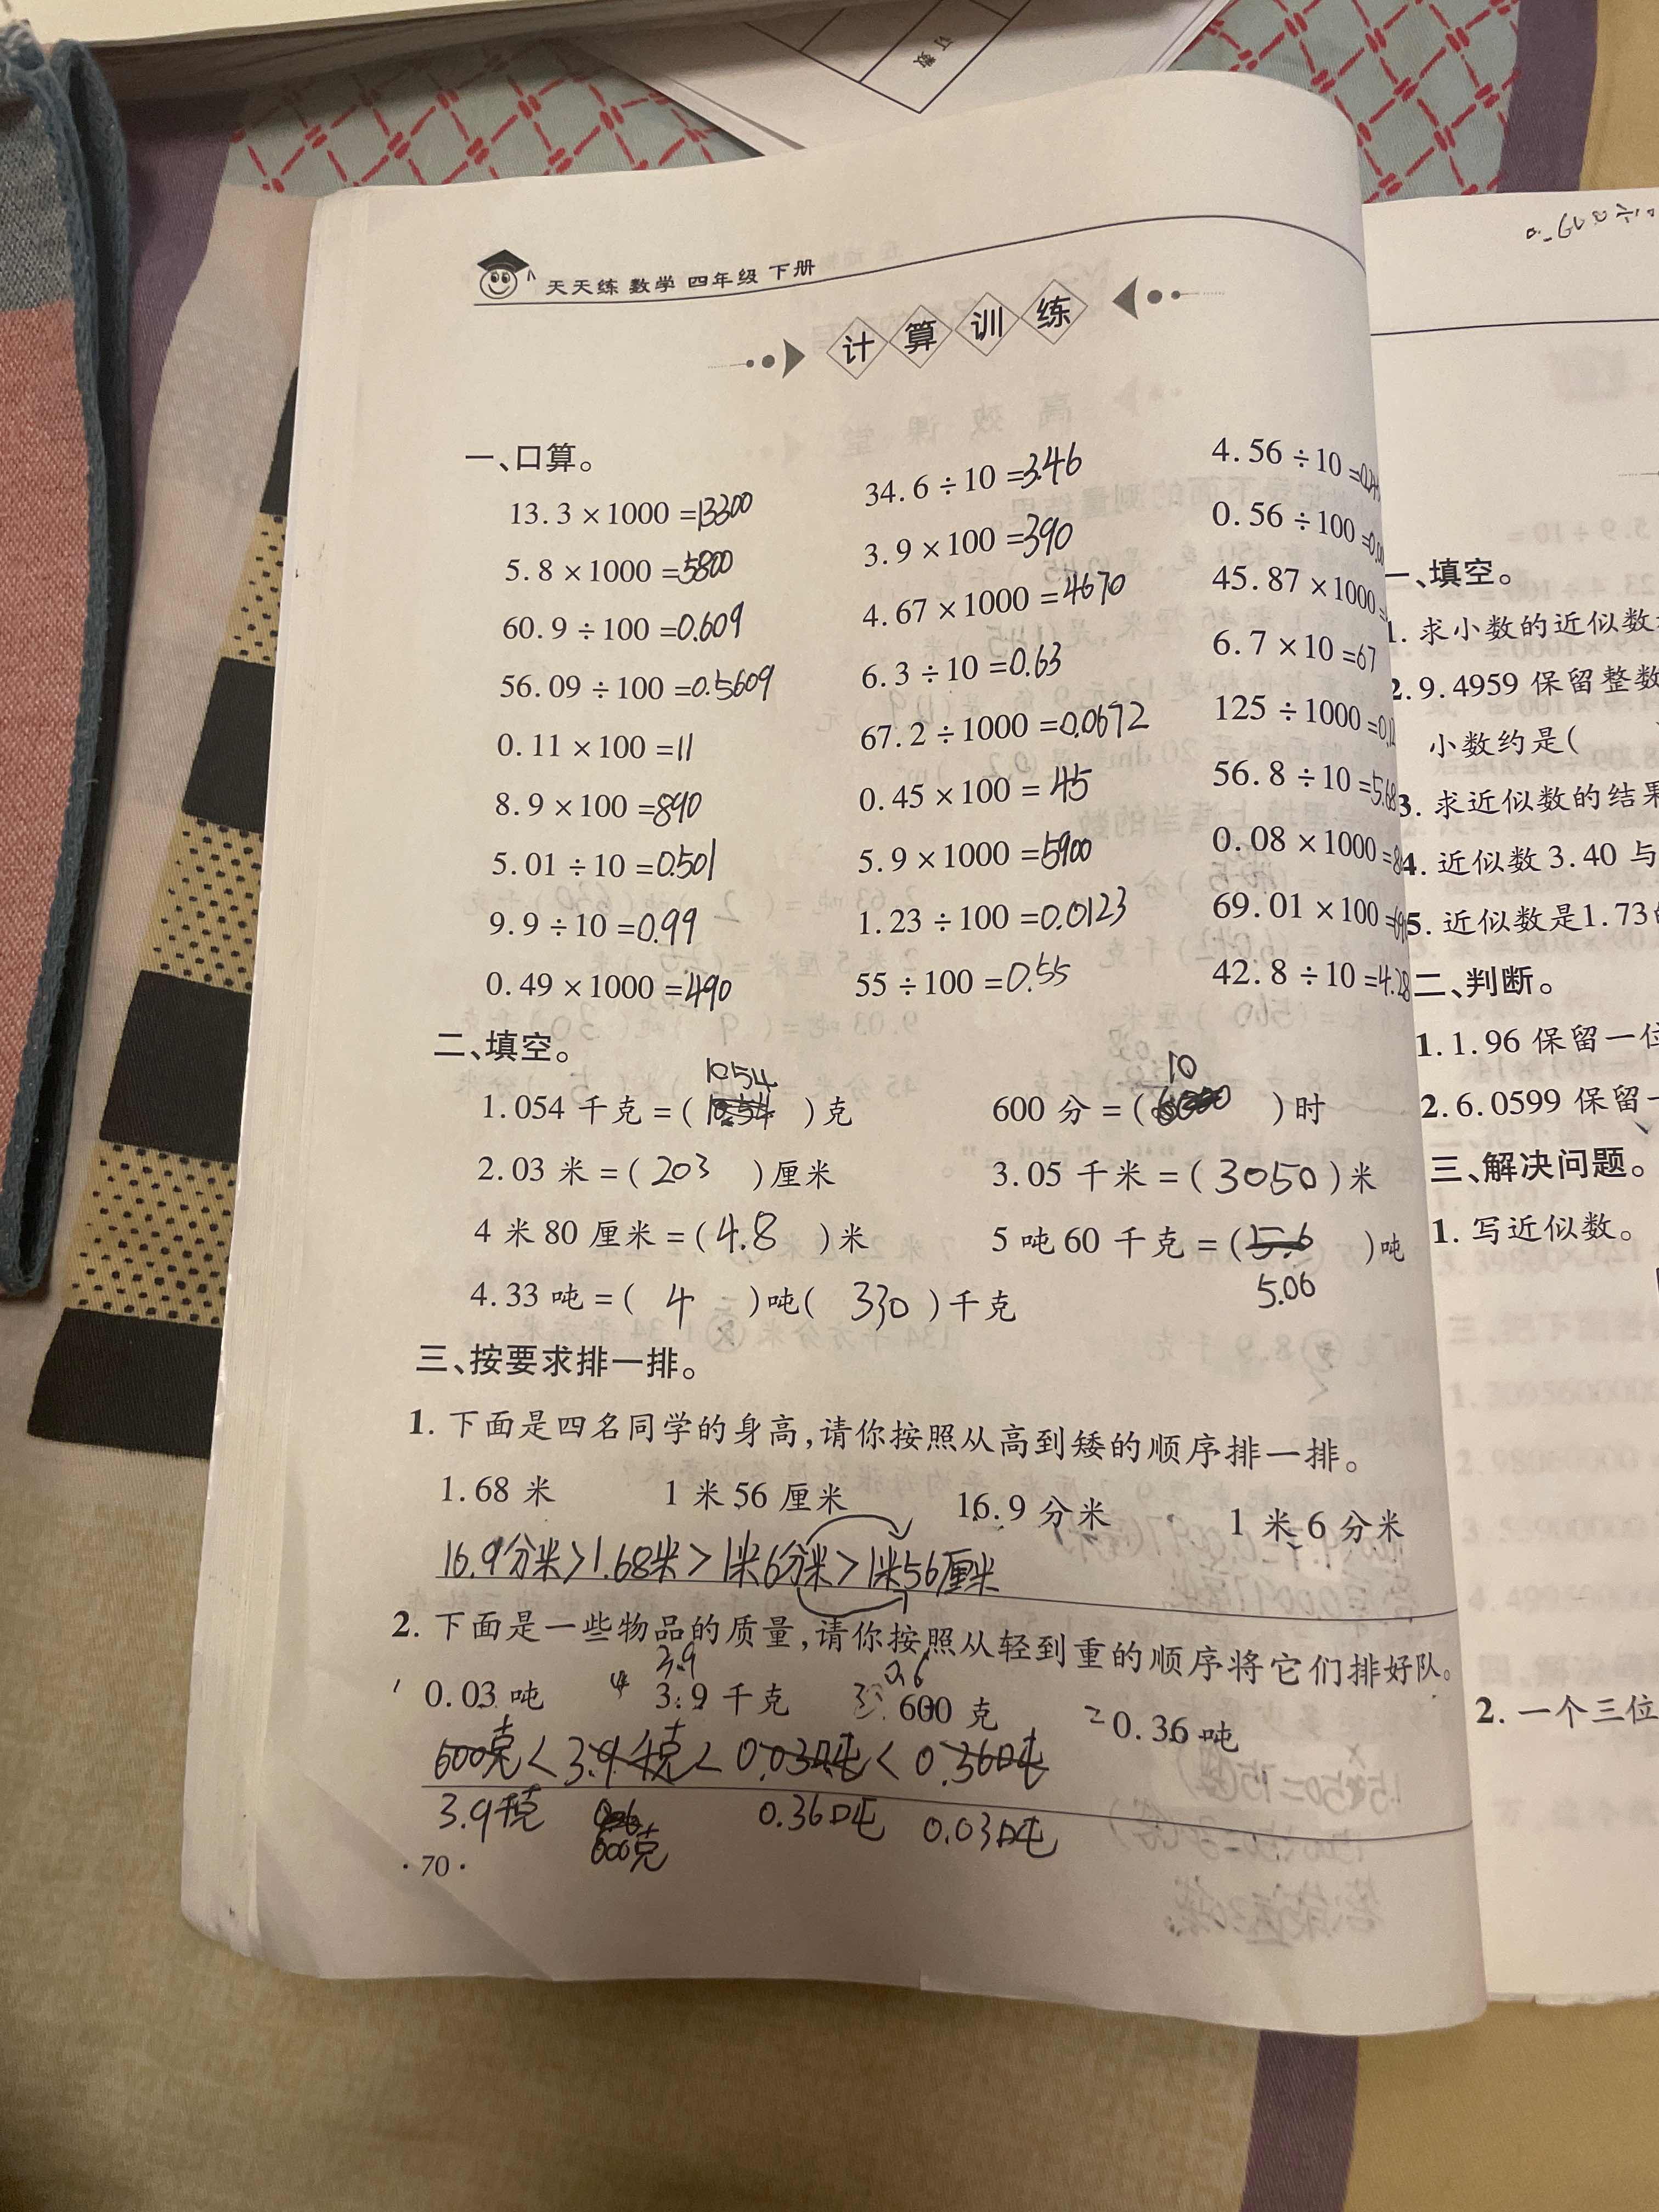 订 数
天天练 数学 四年级 下册
计算训练
一、口算。
13.3×1000=13300
34.6÷10=3.46
4.56÷10=
5.8×1000=5800
3.9×100=390
0.56÷100=
60.9÷100=0.609
4.67×1000=4670
45.87×1000=
56.09÷100=0.5609
6.3÷10=0.63
6.7×10=67
0.11×100=11
67.2÷1000=0.0672
125÷1000=
8.9×100=890
0.45×100=45
56.8÷10=5.68
5.01÷10=0.501
5.9×1000=5900
0.08×1000=
9.9÷10=0.99
1.23÷100=0.0123
69.01×100=
0.49×1000=490
55÷100=0.55
42.8÷10=4.28
二、填空。
1054
10
1.054千克=(10.54)克
600分=( )时
2.03米=(203)厘米
3.05千米=(3050)米
4米80厘米=(4.8)米
5吨60千克=(5.6)吨
5.06
4.33吨=(4)吨(330)千克
三、按要求排一排。
1.下面是四名同学的身高,请你按照从高到矮的顺序排一排。
1.68米 1米56厘米 16.9分米 1米6分米
16.9分米>1.68米>1米6分米>1米56厘米
2.下面是一些物品的质量,请你按照从轻到重的顺序将它们排好队。
3.9 0.6
0.03吨 3.9千克 600克 0.36吨
600克<3.9千克<0.03吨<0.36吨
3.9千克 600克 0.36吨 0.03吨
·70·
一、填空。
1.求小数的近似数
2.9.4959保留整数
小数约是(
3.求近似数的结果
4.近似数3.40与
5.近似数是1.73
二、判断。
1.1.96保留一位
2.6.0599保留一
三、解决问题。
1.写近似数。
2.一个三位